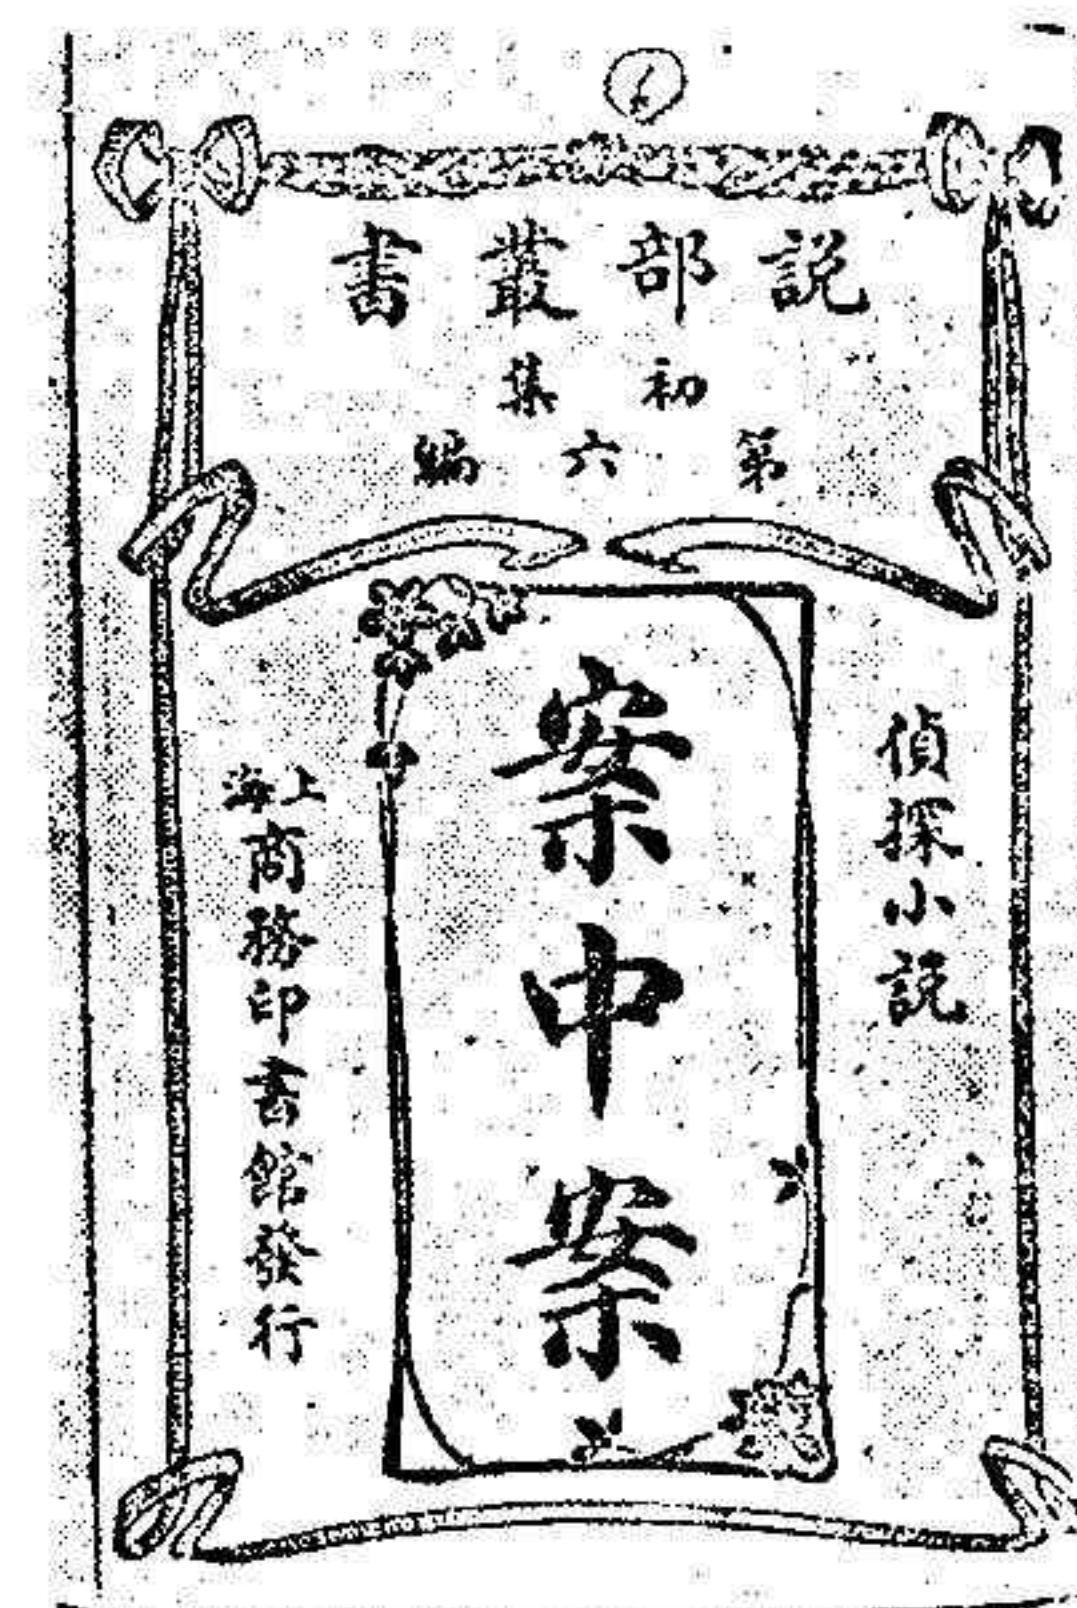 說部叢書
初集
第六編
偵探小說
案中案
上海商務印書館發行